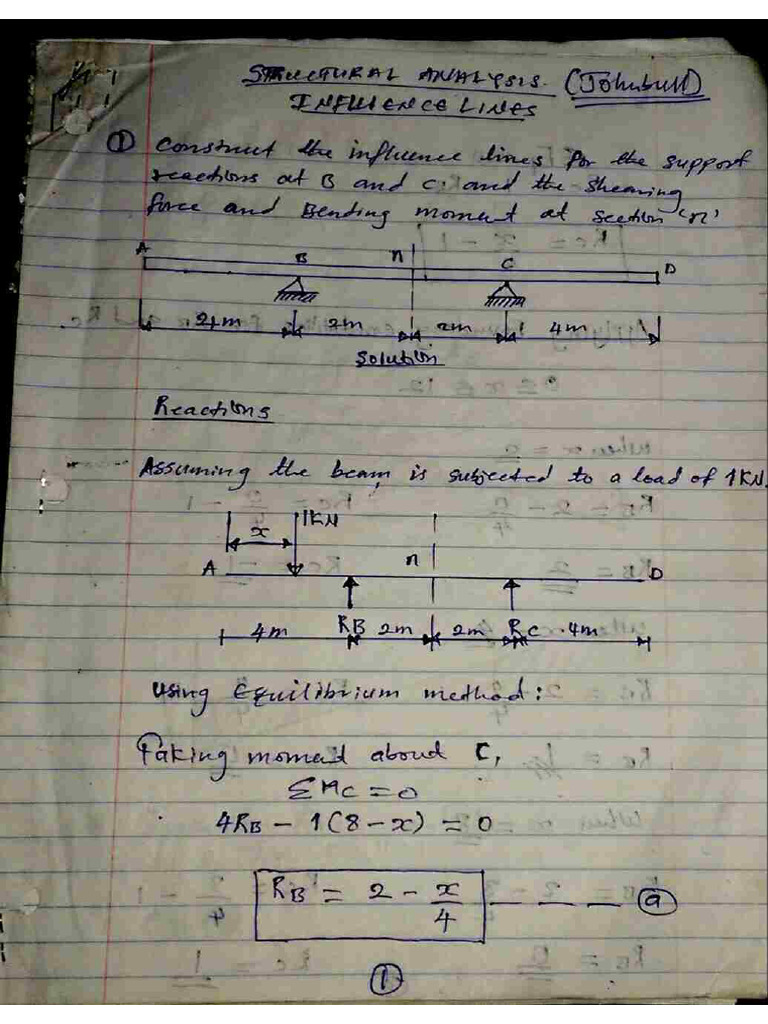 STRUCTURAL ANALYSIS. (Johnbull)
INFLUENCE LINES
① Construct the influence lines for the support
reactions at B and C, and the shearing
force and Bending moment at section 'n'
A B n C D
4m 2m 2m 4m
Solution
Reactions
Assuming the beam is subjected to a load of 1KN.
x 1KN
A n D
4m RB 2m 2m RC 4m
Using Equilibrium method:
Taking moment about C,
ΣMC = 0
4RB - 1(8-x) = 0
RB = 2 - x/4 - - - ⓐ
①